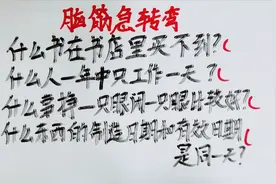 脑筋急转弯
什么书在书店里买不到?(
什么人一年中只工作一天?(
什么事睁一只眼闭一只眼比较好?(
什么东西的制造日期和有效日期
是同一天?(